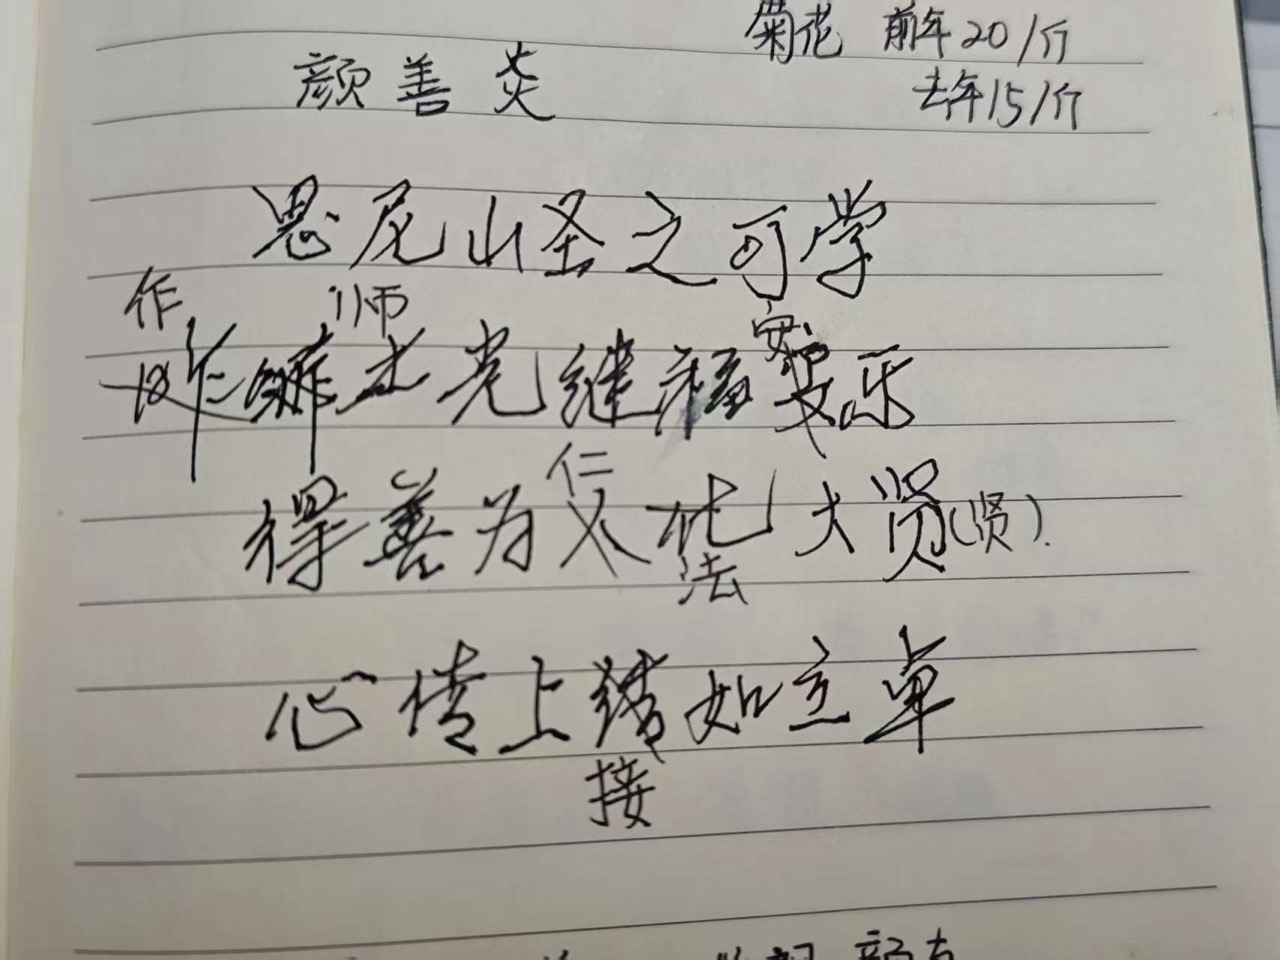 菊花 前年20/斤
颜善炎 去年15/斤
思尼山圣之可学
作 师 安
士光继福安乐
仁
得善为义 大贤(贤).
法
心传上绪如立卓
接